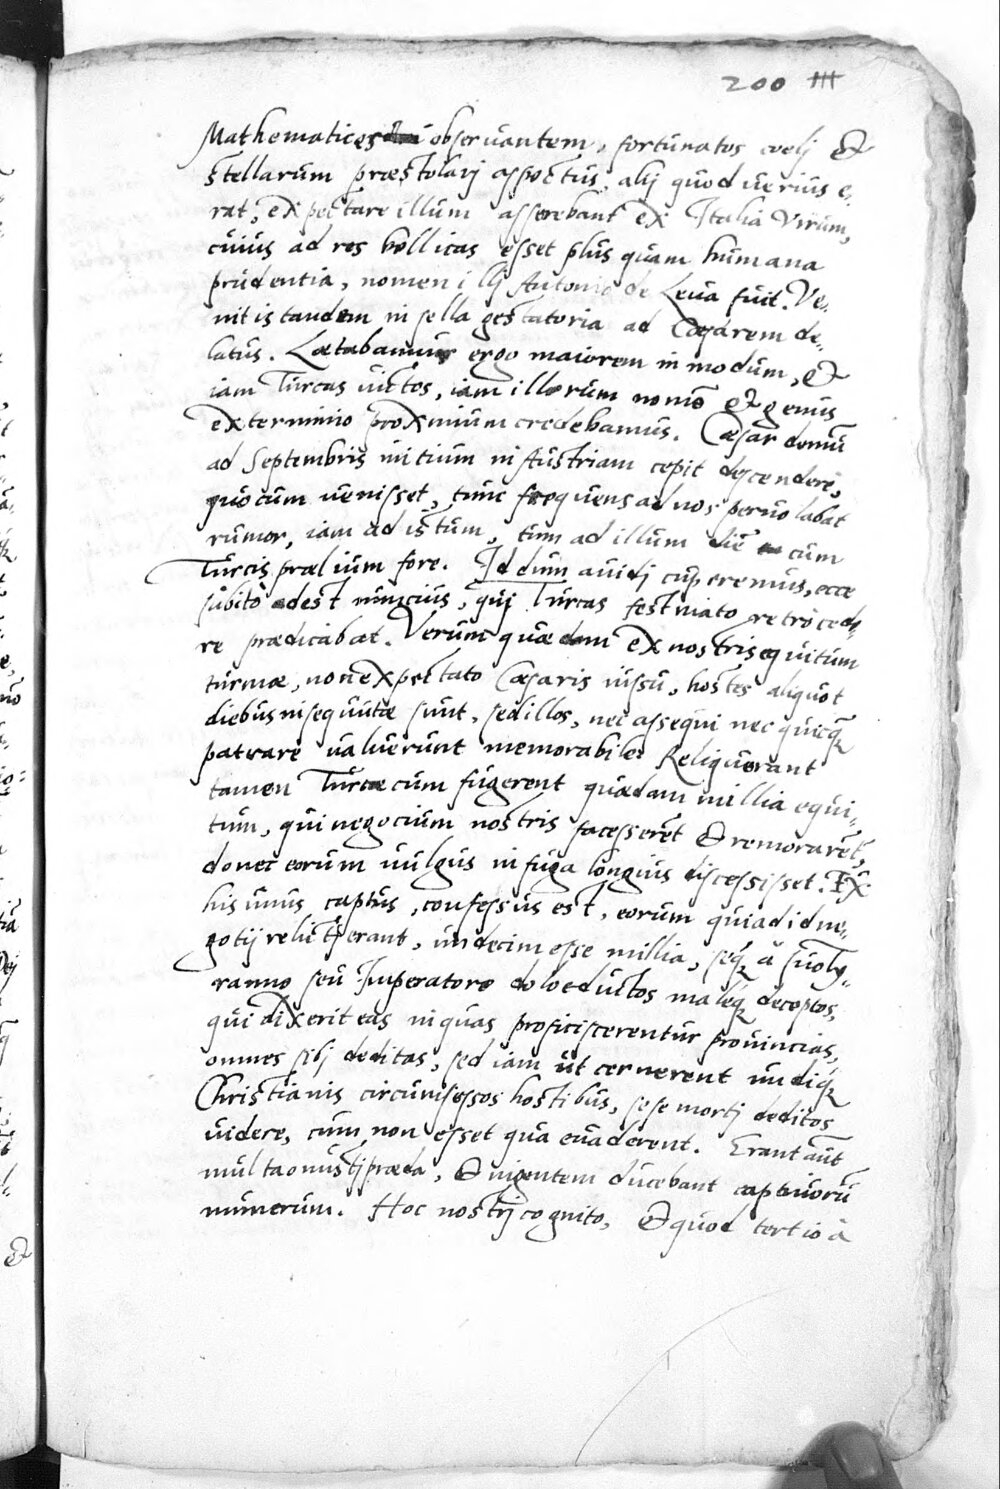 200
Mathematices observantem, fortunatos coelj &
stellarum præstolarj aspectus, alij quod verius e-
rat, expectare illum asserebant ex Italia Virum,
cuius ad res bellicas esset plus quam humana
prudentia, nomen illj Antonio de Leva fuit. Ve-
nit is tandem in sella gestatoria ad Cæsarem de-
latus. Lætabamur ergo maiorem in modum, &
iam Turcas victos, iam illorum nomē & genus
exterminio proximum credebamus. Cæsar demū
ad Septembris initium in Austriam cepit descendere,
quo cum venisset, tunc frequens ad nos pervolabat
rumor, iam ad istum, tum ad illum diē cum
Turcis prælium fore. Id dum avidj cuperemus, ecce
subitò adest nuncius, quj Turcas festinato retrocede-
re prædicabat. Verum quædam ex nostris equitum
turmæ, non expectato Cæsaris iussu, hostes aliquot
diebus insequutæ sunt, sed illos, nec assequi nec quicq̄
patrare valuerunt memorabile. Reliquerant
tamen Turcæ cum fugerent quædam millia equi-
tum, qui negocium nostris facesserēt & remorarēt,
donec eorum vulgus in fuga longius discessisset. Ex
his unus captus, confessus est, eorum qui ad id ne-
gotij relictj erant, undecim esse millia, seq̄ à suo ty-
ranno seu Imperatore dolo eductos maleq̄ deceptos,
qui dixerit eas in quas proficiscerentur provincias,
omnes sibj deditas, sed iam ut cernerent undiq̄
Christianis circumsessos hostibus, sese mortj deditos
videre, cum non esset qua evaderent. Erant aūt
multa onustj præda, & ingentem ducebant captivorū
numerum. Hoc nostrj cognito, & quod tertio à